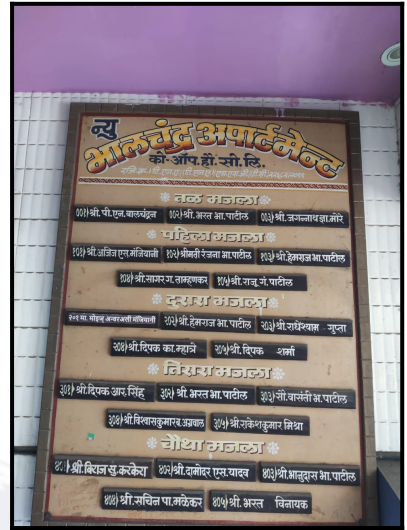 न्यु
भालचंद्र अपार्टमेन्ट
को-ऑप.हौ.सो.लि.
तळ मजला
००१) श्री.पी.एन.बालचंद्रन ००२) श्री.भरत भा.पाटील ००३) श्री.जगन्नाथ ज्ञा.मोरे
पहिला मजला
१०१) श्री.अजिज एस.मंजियानी १०२) श्रीमती रंजना भा.पाटील १०३) श्री.हेमराज भा.पाटील
१०४) श्री.सागर ग. ताम्हणकर १०५) श्री.राजू गं. पाटील
दुसरा मजला
२०१ सा. मोहज अन्वरअली मंजियानी २०२) श्री.हेमराज भा. पाटील २०३) श्री.राधेश्याम गुप्ता
२०४) श्री.दिपक का.म्हात्रे २०५) श्री.दिपक शर्मा
तिसरा मजला
३०१) श्री.दिपक आर.सिंह ३०२) श्री. भरत भा.पाटील ३०३) सौ.वासंती भ. पाटील
३०४) श्री.विश्वासकुमार ब.अग्रवाल ३०५) श्री.राकेशकुमार मिश्रा
चौथा मजला
४०१) श्री.बिराज सु.करकेरा ४०२) श्री.दामोदर एस.यादव ४०३) श्री.भानुदास भा.पाटील
४०४) श्री.सचिन पा.मळेकर ४०५) श्री. भरत विनायक